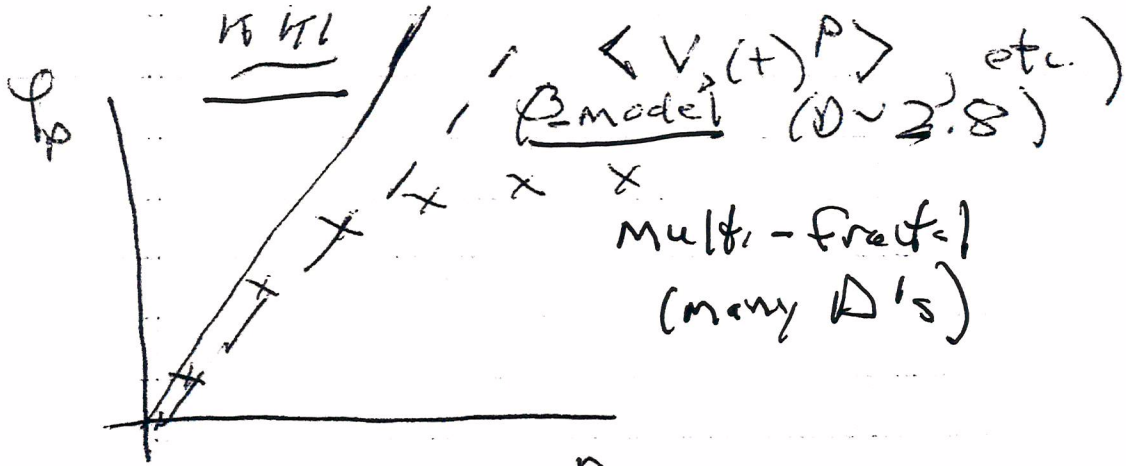 K41
< V(t)^p > , etc. )
β-model (D ~ 2.8)
ζp
multi-fractal
(many D's)
p